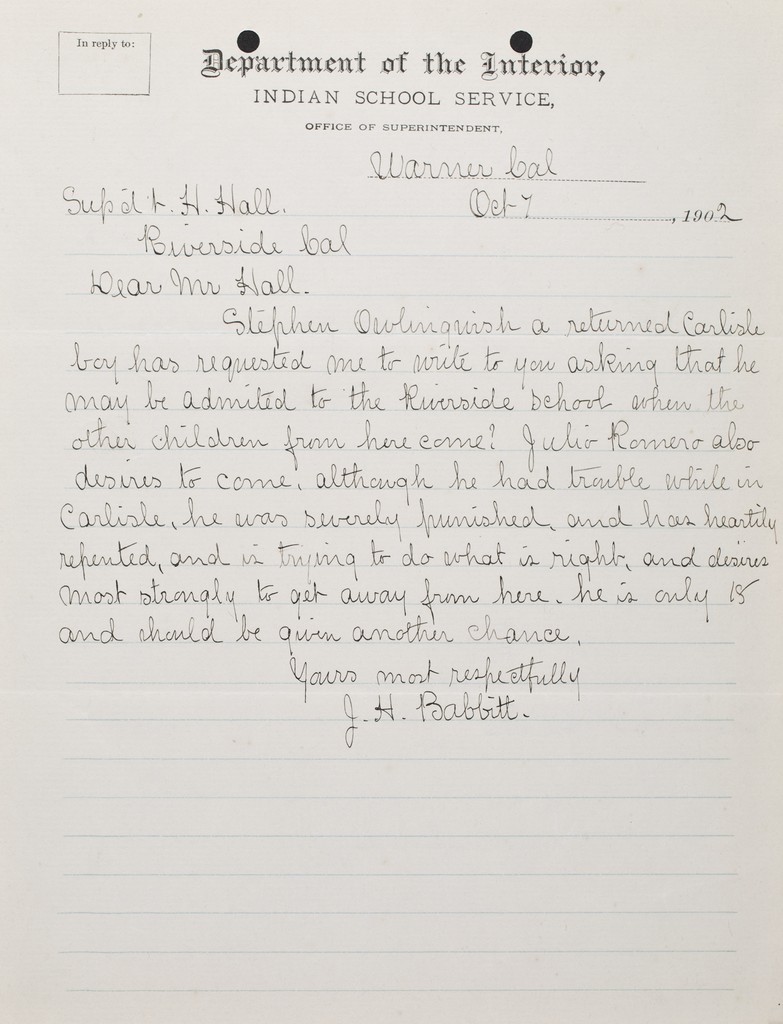 In reply to:
Department of the Interior,
INDIAN SCHOOL SERVICE,
OFFICE OF SUPERINTENDENT,
Warner Cal
Sup'd't. H. Hall. Oct 7, 1902
Riverside Cal
Dear Mr Hall.
Stephen Owlinguish a returned Carlisle
boy has requested me to write to you asking that he
may be admited to the Riverside School when the
other children from here come? Julio Romero also
desires to come, although he had trouble while in
Carlisle, he was severely punished, and has heartily
repented, and is trying to do what is right, and desires
most strongly to get away from here. he is only 18
and should be given another chance.
Yours most respectfully
J. H. Babbitt.